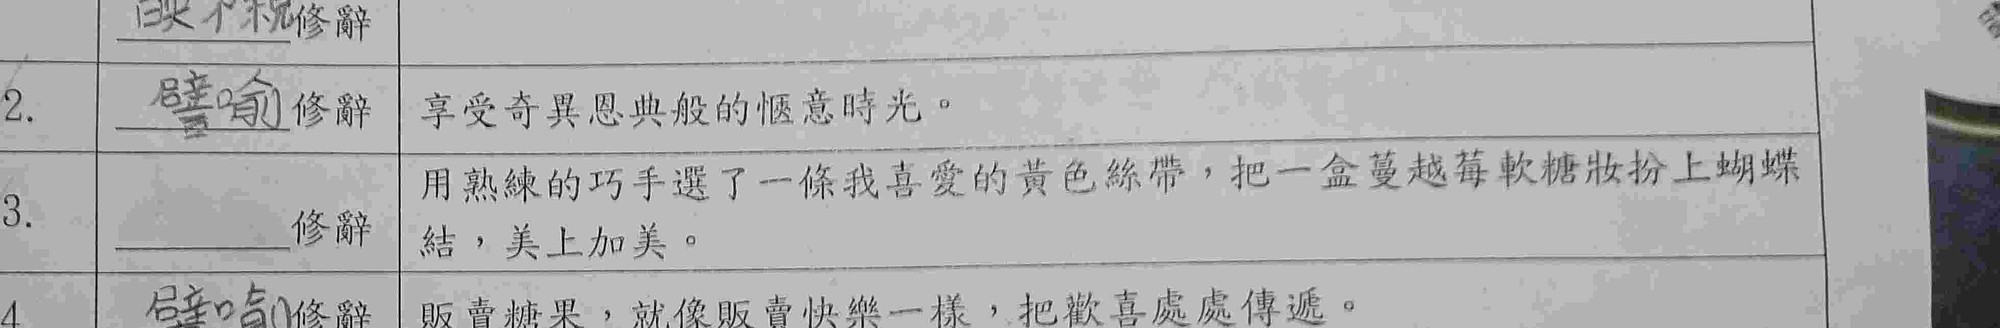 修辭
2. 譬喻修辭 享受奇異恩典般的愜意時光。
3. 修辭 用熟練的巧手選了一條我喜愛的黃色絲帶，把一盒蔓越莓軟糖妝扮上蝴蝶
結，美上加美。
4 譬喻修辭 販賣糖果，就像販賣快樂一樣，把歡喜處處傳遞。